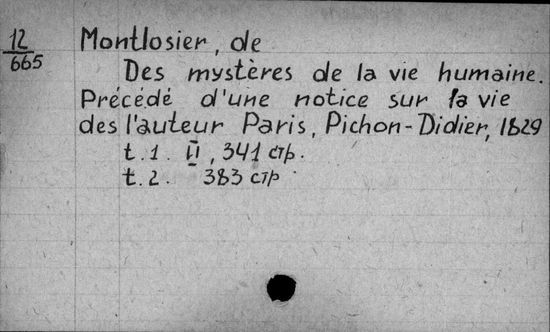 12
665
Montlosier, de
Des mystères de la vie humaine.
Précédé d'une notice sur la vie
des l'auteur Paris, Pichon-Didier, 1829
t. 1. II, 341 стр.
t. 2. 383 стр